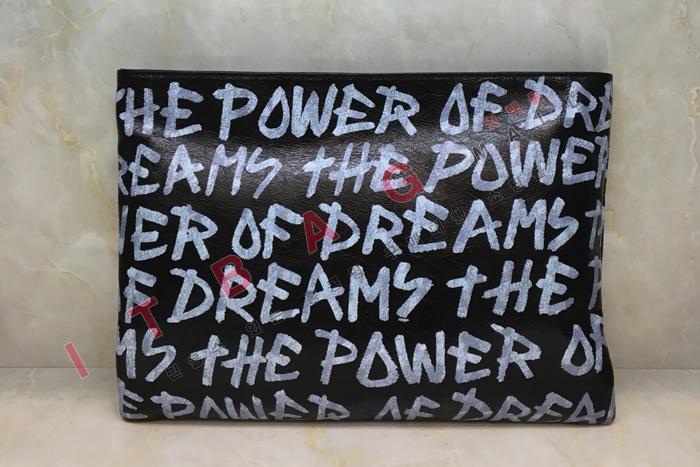 THE POWER OF DRE
REAMS THE POWER
WER OF DREAMS T
E DREAMS THE
MS THE POWER OF
E POWER OF DREA
ITBAG